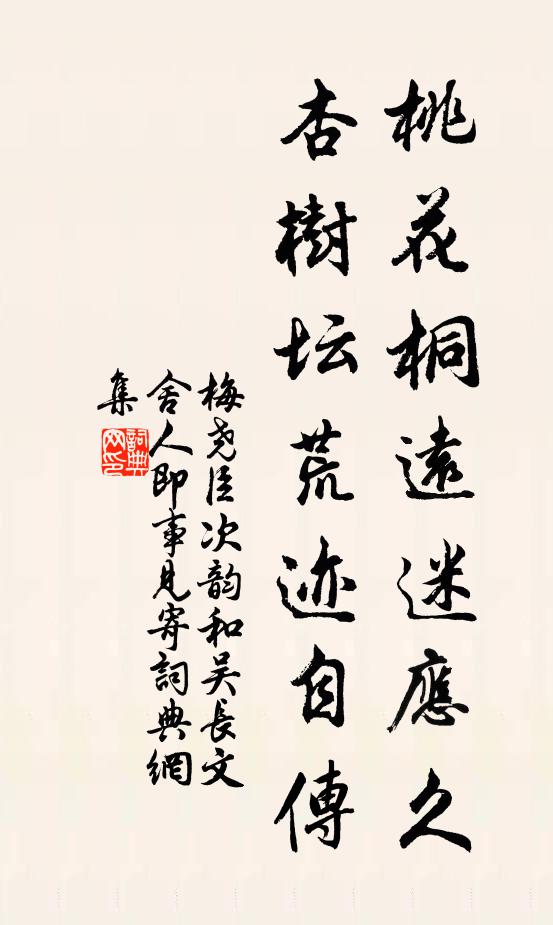 桃花桐遠迷應久
杏樹坛荒迹自傳
梅尧臣次韵和吴長文
舍人即事見寄詞典網
集
詞典
网印